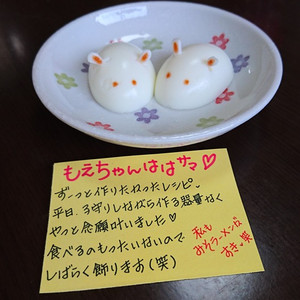 もえちゃんははサマ♡
ずーっと作りたかったレシピ。
平日、子守りしながら作る器量なく
やっと念願叶いました♡
食べるのもったいないので
しばらく飾ります(笑)
私も
みそラーメンが
すき。笑